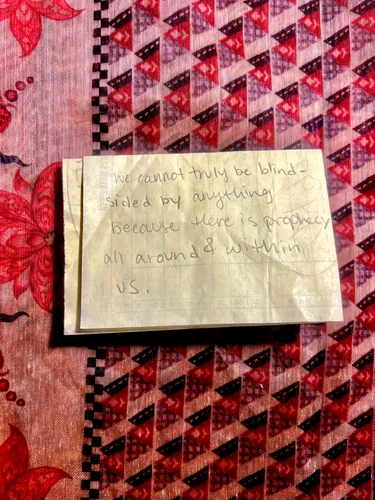 We cannot truly be blind-
sided by anything
because there is prophecy
all around & within
us.